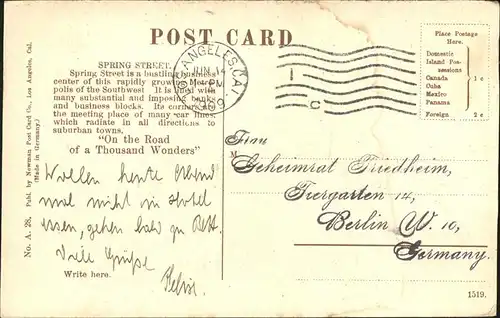 POST CARD
SPRING STREET.
Spring Street is a bustling business
center of this rapidly growing Metro-
polis of the Southwest. It is lined with
many substantial and imposing banks
and business blocks. Its corners are
the meeting place of many car lines,
which radiate in all directions to
suburban towns.
"On the Road
of a Thousand Wonders"
Wollen heute Abend
mal nicht im Hotel
essen, gehen bald zu Bett.
Viele Grüße
Write here.
No. A. 28. Publ. by Newman Post Card Co., Los Angeles, Cal.
(Made in Germany.)
LOS ANGELES, CAL.
JUN 14
PM
1909
I
C
Place Postage
Here.
Domestic
Island Pos-
sessions
Canada
Cuba
Mexico
Panama
1 c
Foreign 2 c
Frau
M
Geheimrat Friedheim,
Tiergarten 14,
Berlin W. 10,
Germany.
1519.